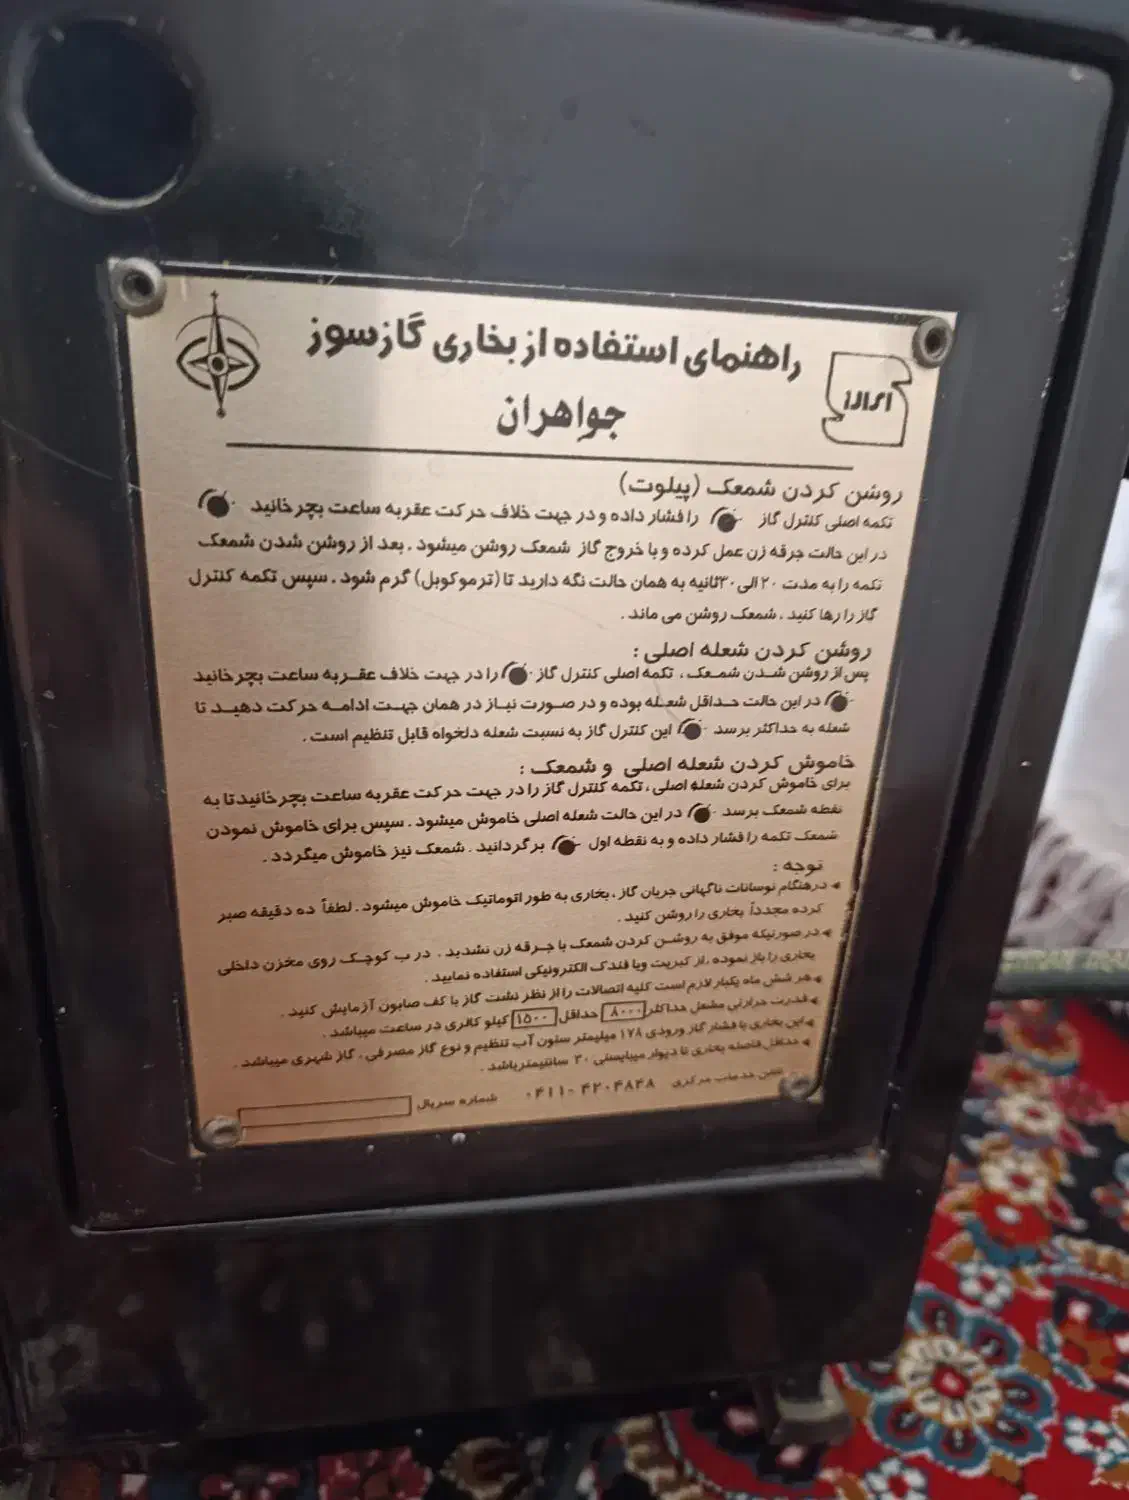 راهنمای استفاده از بخاری گازسوز
جواهران
روشن کردن شمعک (پیلوت)
تکمه اصلی کنترل گاز را فشار داده و در جهت خلاف حرکت عقربه ساعت بچرخانید
در این حالت جرقه زن عمل کرده و با خروج گاز شمعک روشن میشود . بعد از روشن شدن شمعک
تکمه را به مدت ۲۰ الی ۳۰ ثانیه به همان حالت نگه دارید تا (ترموکوبل) گرم شود . سپس تکمه کنترل
گاز را رها کنید ، شمعک روشن می ماند .
روشن کردن شعله اصلی :
پس از روشن شدن شمعک ، تکمه اصلی کنترل گاز را در جهت خلاف عقربه ساعت بچرخانید
در این حالت حداقل شعله بوده و در صورت نیاز در همان جهت ادامه حرکت دهید تا
شعله به حداکثر برسد این کنترل گاز به نسبت شعله دلخواه قابل تنظیم است .
خاموش کردن شعله اصلی و شمعک :
برای خاموش کردن شعله اصلی ، تکمه کنترل گاز را در جهت حرکت عقربه ساعت بچرخانید تا به
نقطه شمعک برسد در این حالت شعله اصلی خاموش میشود . سپس برای خاموش نمودن
شمعک تکمه را فشار داده و به نقطه اول برگردانید . شمعک نیز خاموش میگردد .
توجه :
در هنگام نوسانات ناگهانی جریان گاز ، بخاری به طور اتوماتیک خاموش میشود . لطفاً ده دقیقه صبر
کرده مجدداً بخاری را روشن کنید .
در صورتیکه موفق به روشن کردن شمعک با جرقه زن نشدید . درب کوچک روی مخزن داخلی
بخاری را باز نموده ، از کبریت ویا فندک الکترونیکی استفاده نمایید .
هر شش ماه یکبار لازم است کلیه اتصالات را از نظر نشت گاز با کف صابون آزمایش کنید .
قدرت حرارتی مشعل حداکثر ۸۰۰۰ حداقل ۱۵۰۰ کیلو کالری در ساعت میباشد .
این بخاری با فشار گاز ورودی ۱۷۸ میلیمتر ستون آب تنظیم و نوع گاز مصرفی ، گاز شهری میباشد .
حداقل فاصله بخاری تا دیوار میبایستی ۲۰ سانتیمتر باشد .
تلفن خدمات مرکزی ۴۲۰۴۸۴۸ -۰۴۱۱
شماره سریال